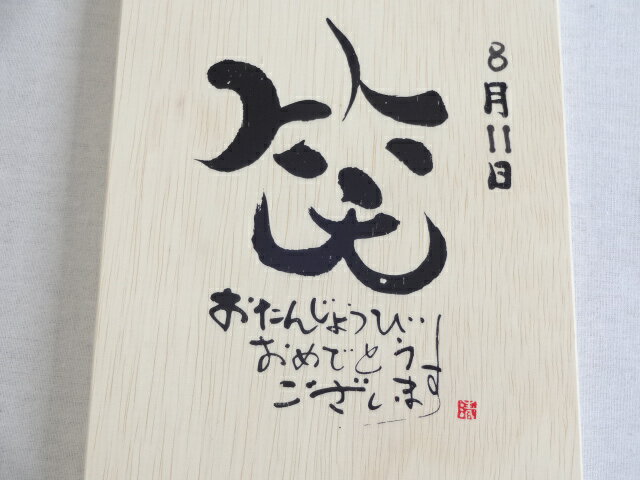 8月11日
笑
おたんじょうび…
おめでとう
ございます